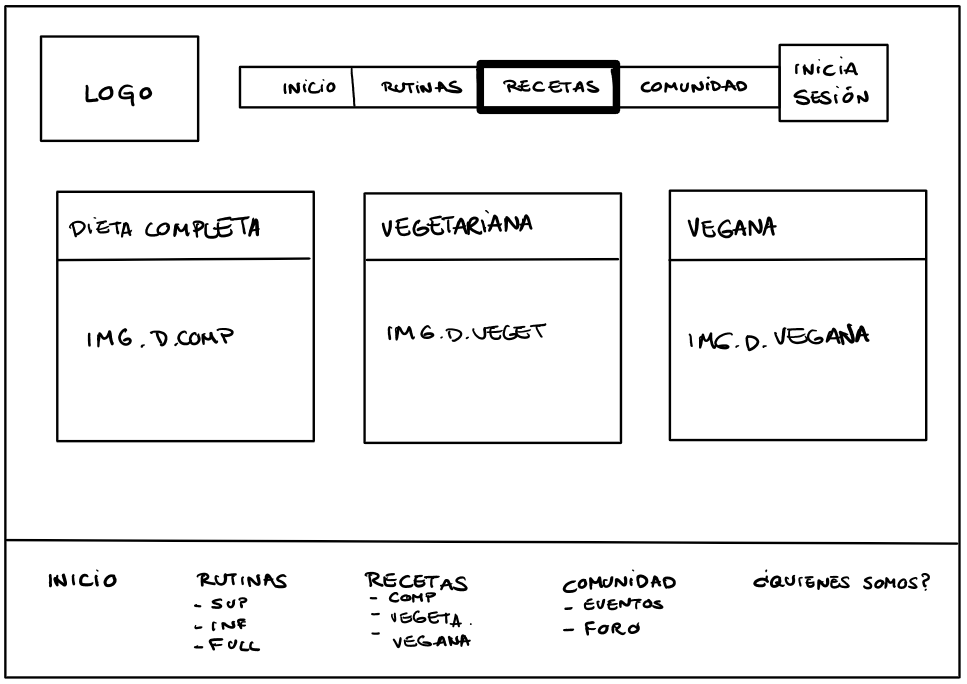 LOGO
INICIO RUTINAS RECETAS COMUNIDAD
INICIA
SESIÓN
DIETA COMPLETA
IMG. D.COMP
VEGETARIANA
IMG.D.VEGET
VEGANA
IMG.D. VEGANA
INICIO
RUTINAS
- SUP
- INF
- FULL
RECETAS
- COMP
- VEGETA.
- VEGANA
COMUNIDAD
- EVENTOS
- FORO
¿QUIENES SOMOS?